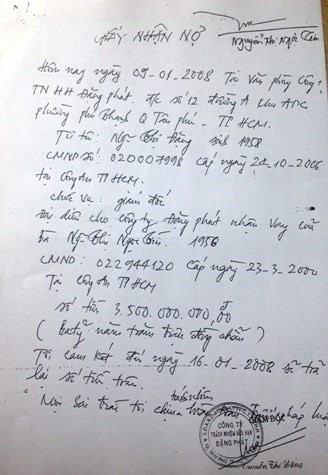 GIẤY NHẬN NỢ
Nguyễn Thị Ngọc
Hôm nay ngày 09-01-2008 Tại Văn phòng Công ty
TNHH Đăng phát. Đ/c số 12 đường A khu ADC
phường phú thạnh Q Tân phú - TP HCM.
Tôi tên: Ng Thị Đăng sinh 1958
CMND số: 020007998 cấp ngày 24-10-2006
tại Công An TP HCM.
chức vụ: giám đốc
đại diện cho công ty Đăng phát nhận vay của
bà Ng Thị Ngọc 1956
CMND: 022944120 cấp ngày 23-3-2000
Tại Công An TP HCM
số tiền 3.500.000.000,00đ
(Ba tỷ năm trăm triệu đồng chẵn)
Tôi cam kết đến ngày 16-01-2008 sẽ trả
lại số tiền trên.
Nếu Sai trái tôi chịu trách nhiệm pháp luật
CÔNG TY
TRÁCH NHIỆM HỮU HẠN
ĐĂNG PHÁT
Thị Đăng